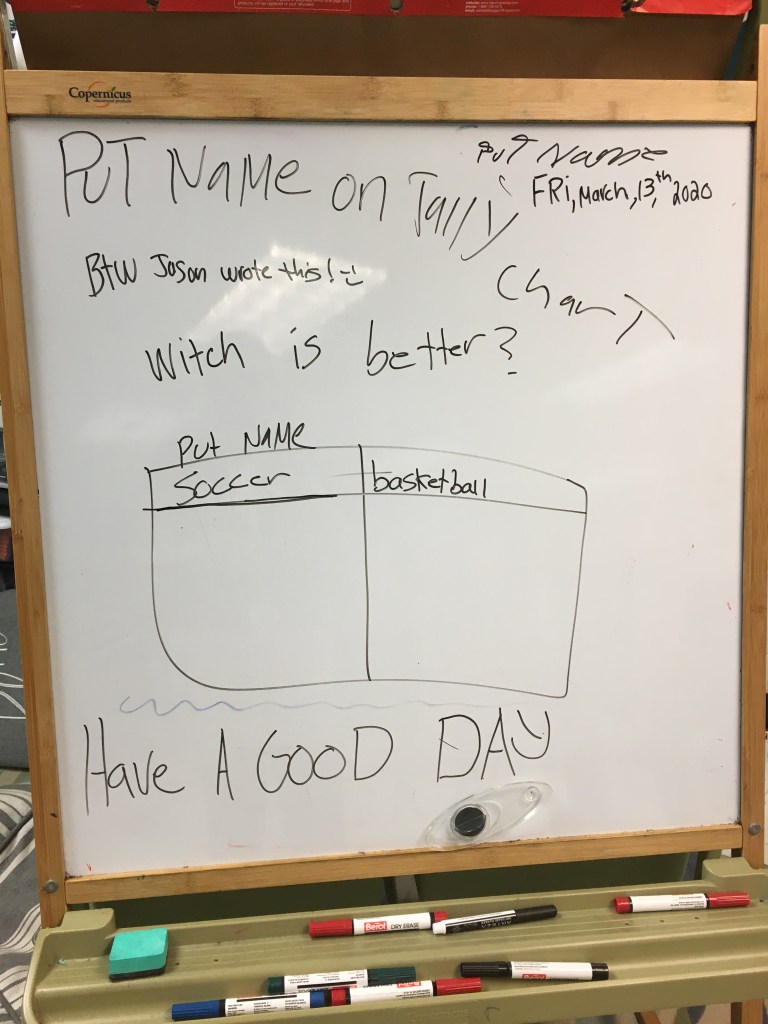 Copernicus
educational products
PUT Name
PUT NaMe on Tally
FRi, March, 13,th 2020
BtW Jason wrote this! :)
ChaRT
Witch is better?
Put NaMe
Soccer
basketball
Have A GOOD DAY
Berol DRY ERASE